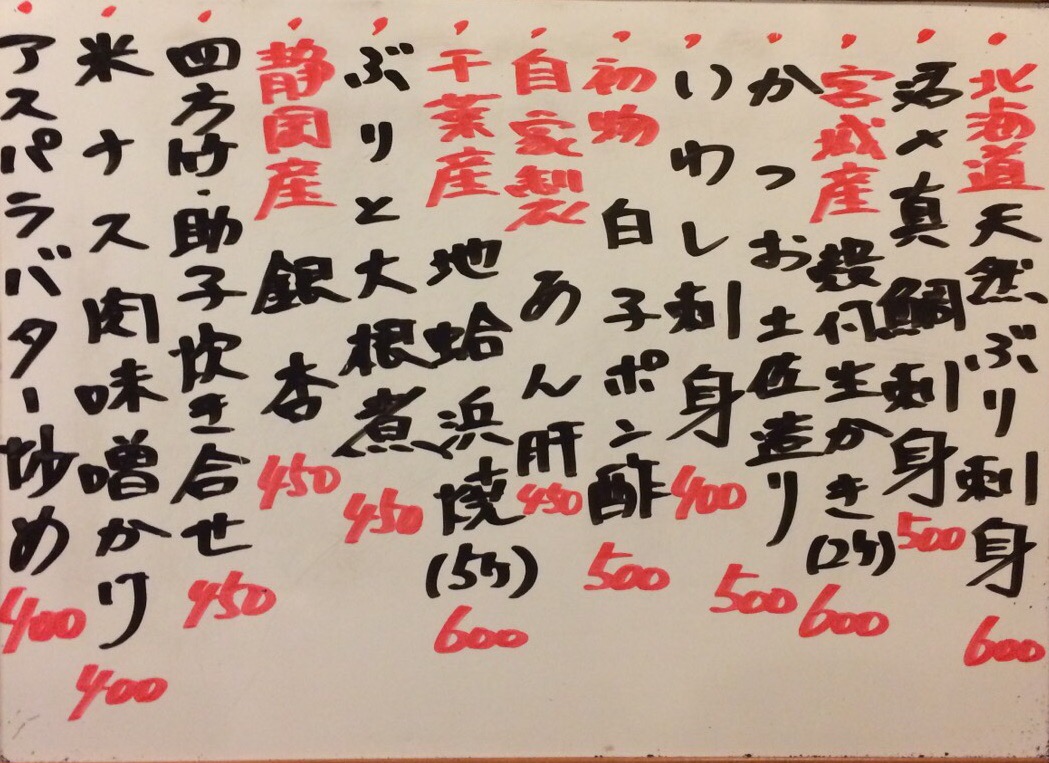 北海道 天然ぶり刺身 600
活〆真鯛刺身 500
宮城産 殻付生かき(2ケ) 600
かつお土佐造り 500
いわし刺身 400
初物 白子ポン酢 500
自家製 あん肝 450
千葉産 地蛤浜焼(5ケ) 600
ぶりと大根煮 450
静岡産 銀杏 450
四方竹・助子炊き合せ 450
米ナス肉味噌かけ 400
アスパラバター炒め 400